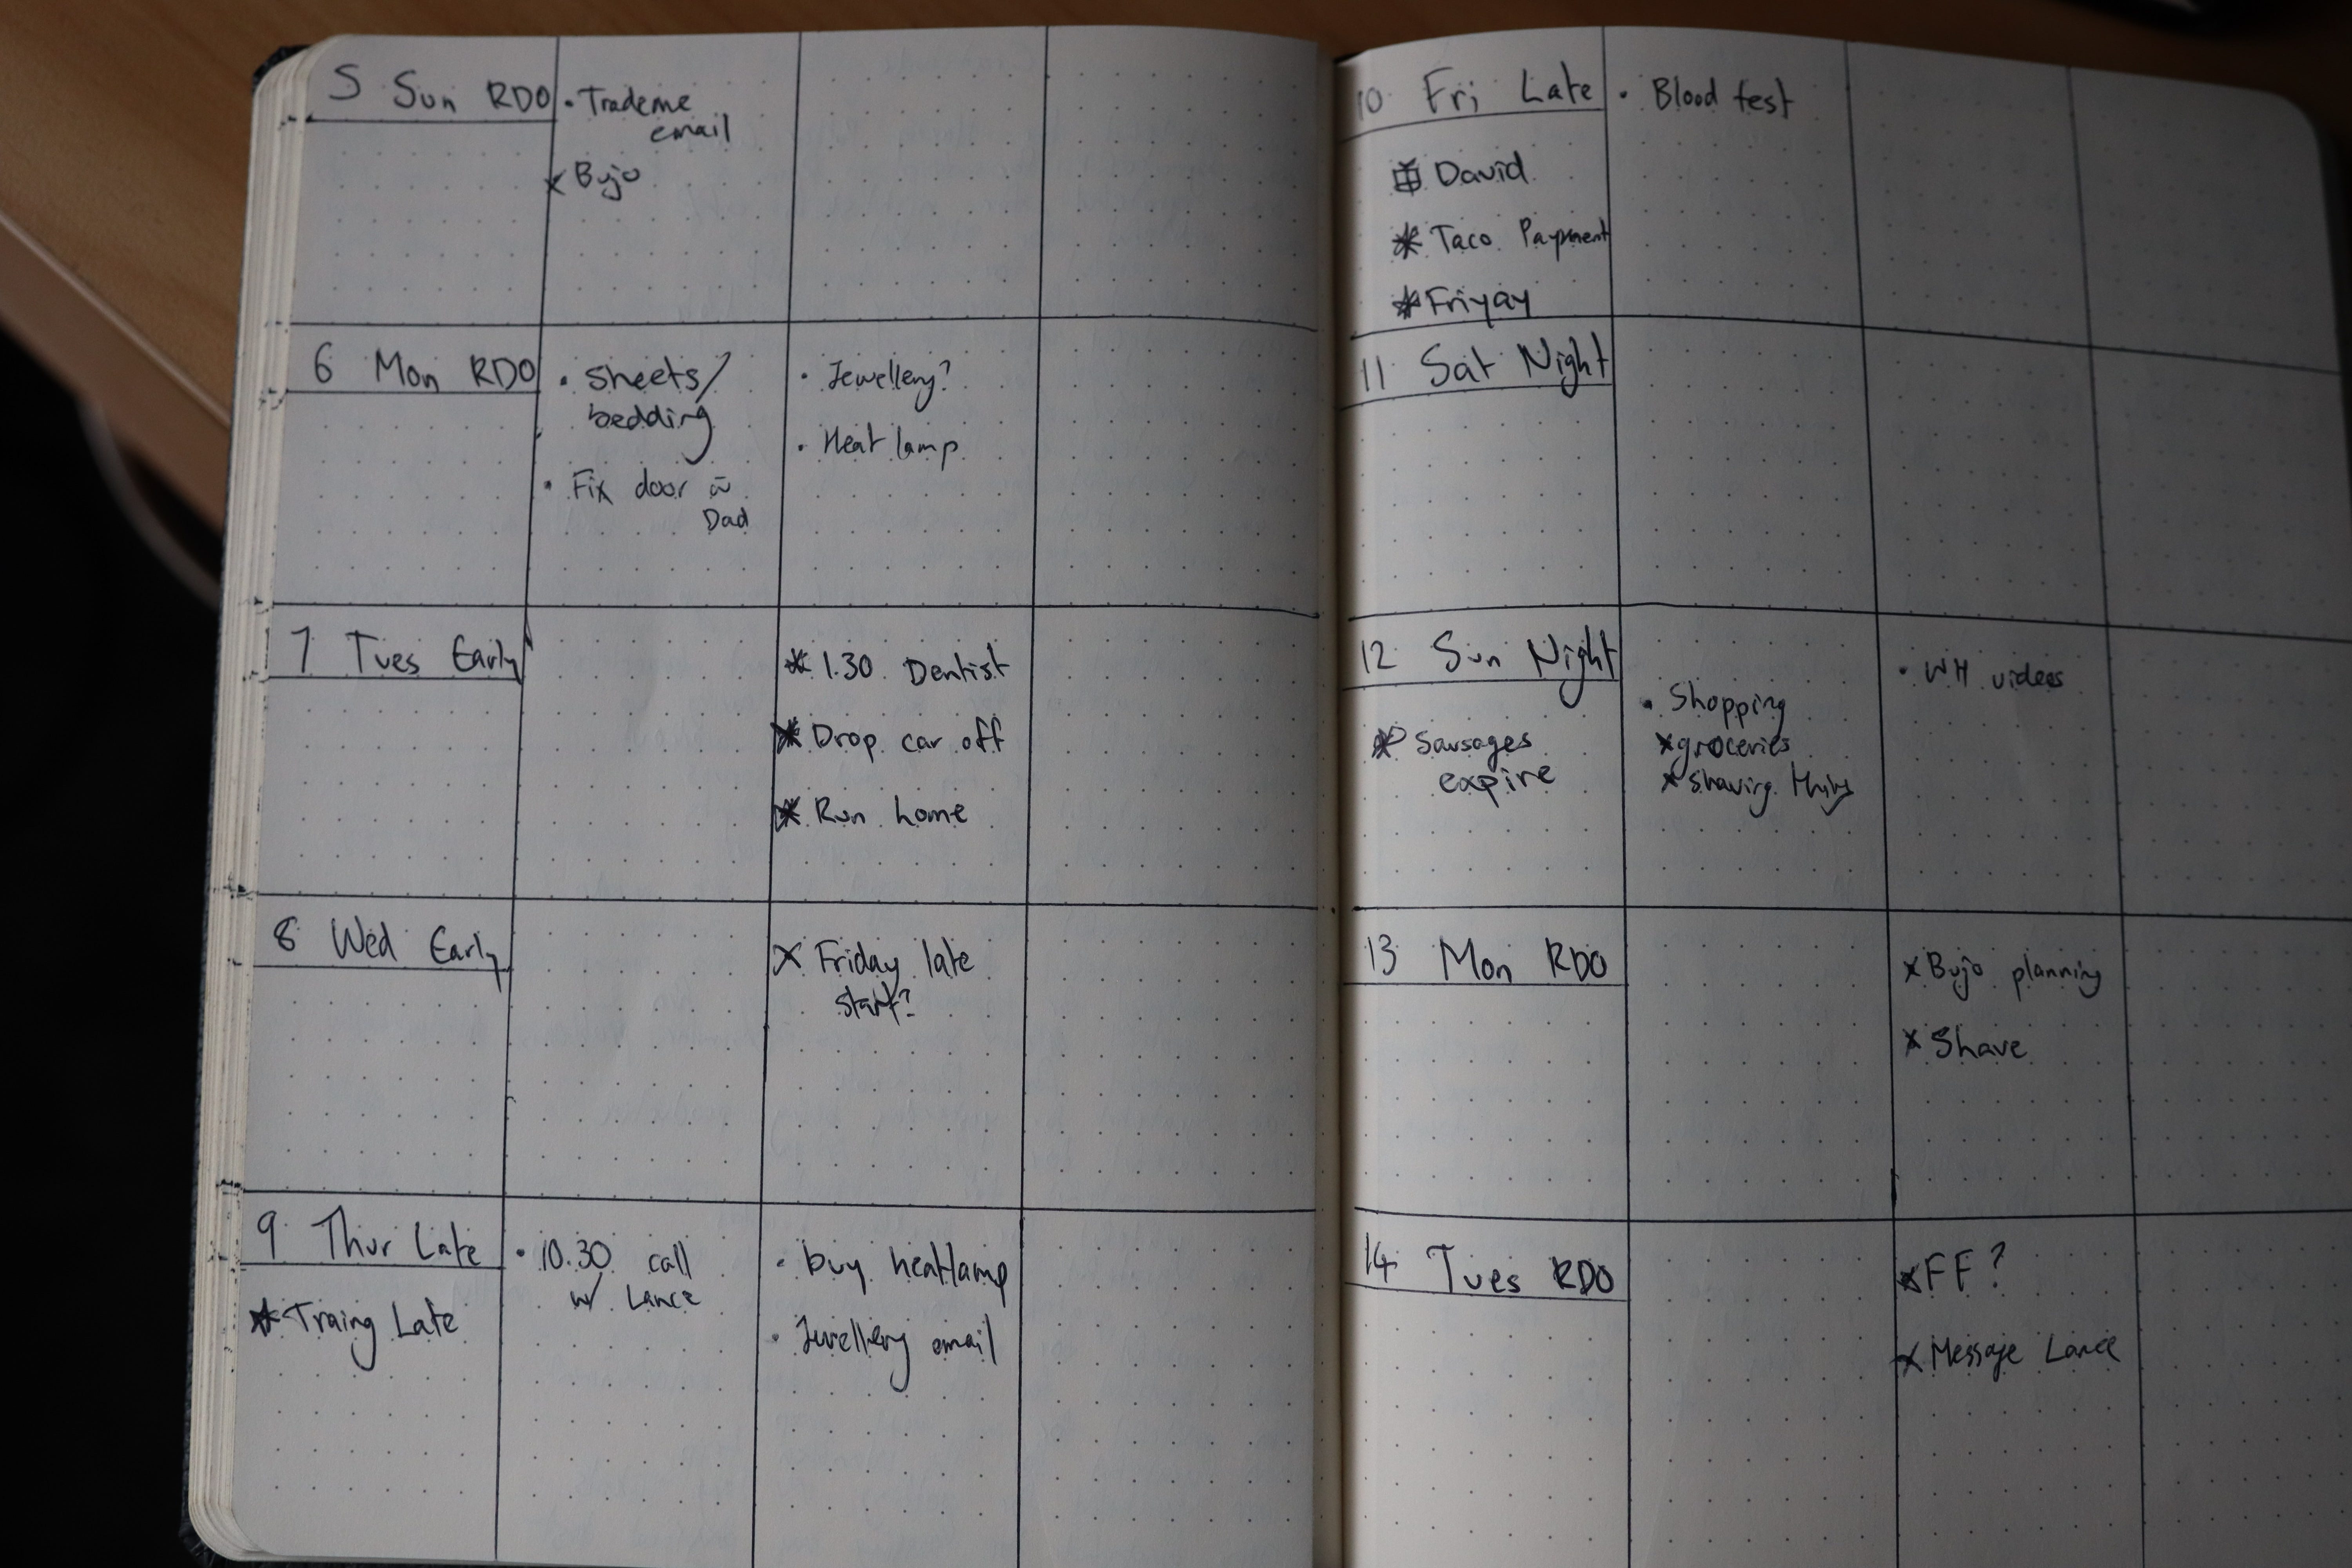 5 Sun RDO
• Trademe
email
x Bujo
6 Mon RDO
• Sheets/
bedding
• Fix door c̄
Dad
• Jewellery?
• Heat lamp
7 Tues Early
* 1.30 Dentist
* Drop car off
* Run home
8 Wed Early
x Friday late
start?
9 Thur Late
* Traing Late
• 10.30 call
w/ Lance
• buy heatlamp
• Jewellery email
10 Fri Late
David
* Taco Payment
* Friyay
• Blood test
11 Sat Night
12 Sun Night
* Sausages
expire
• Shopping
x groceries
x shaving things
• WH videos
13 Mon RDO
x Bujo planning
x Shave
14 Tues RDO
x FF?
x Message Lance